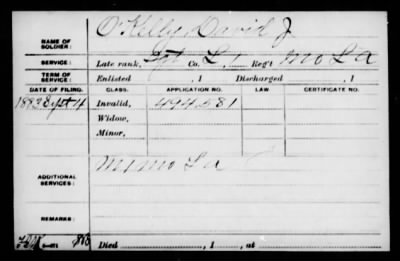 NAME OF SOLDIER: O'Kelly, David J.
SERVICE: Late rank, Sgt Co. L, 1 Reg't Mo L A
TERM OF SERVICE: Enlisted , 1 Discharged , 1
DATE OF FILING. CLASS. APPLICATION NO. LAW. CERTIFICATE NO.
1893 Sept 4 Invalid, 494,581
Widow,
Minor,
ADDITIONAL SERVICES: M 1 Mo L A
REMARKS:
Died , 1 , at